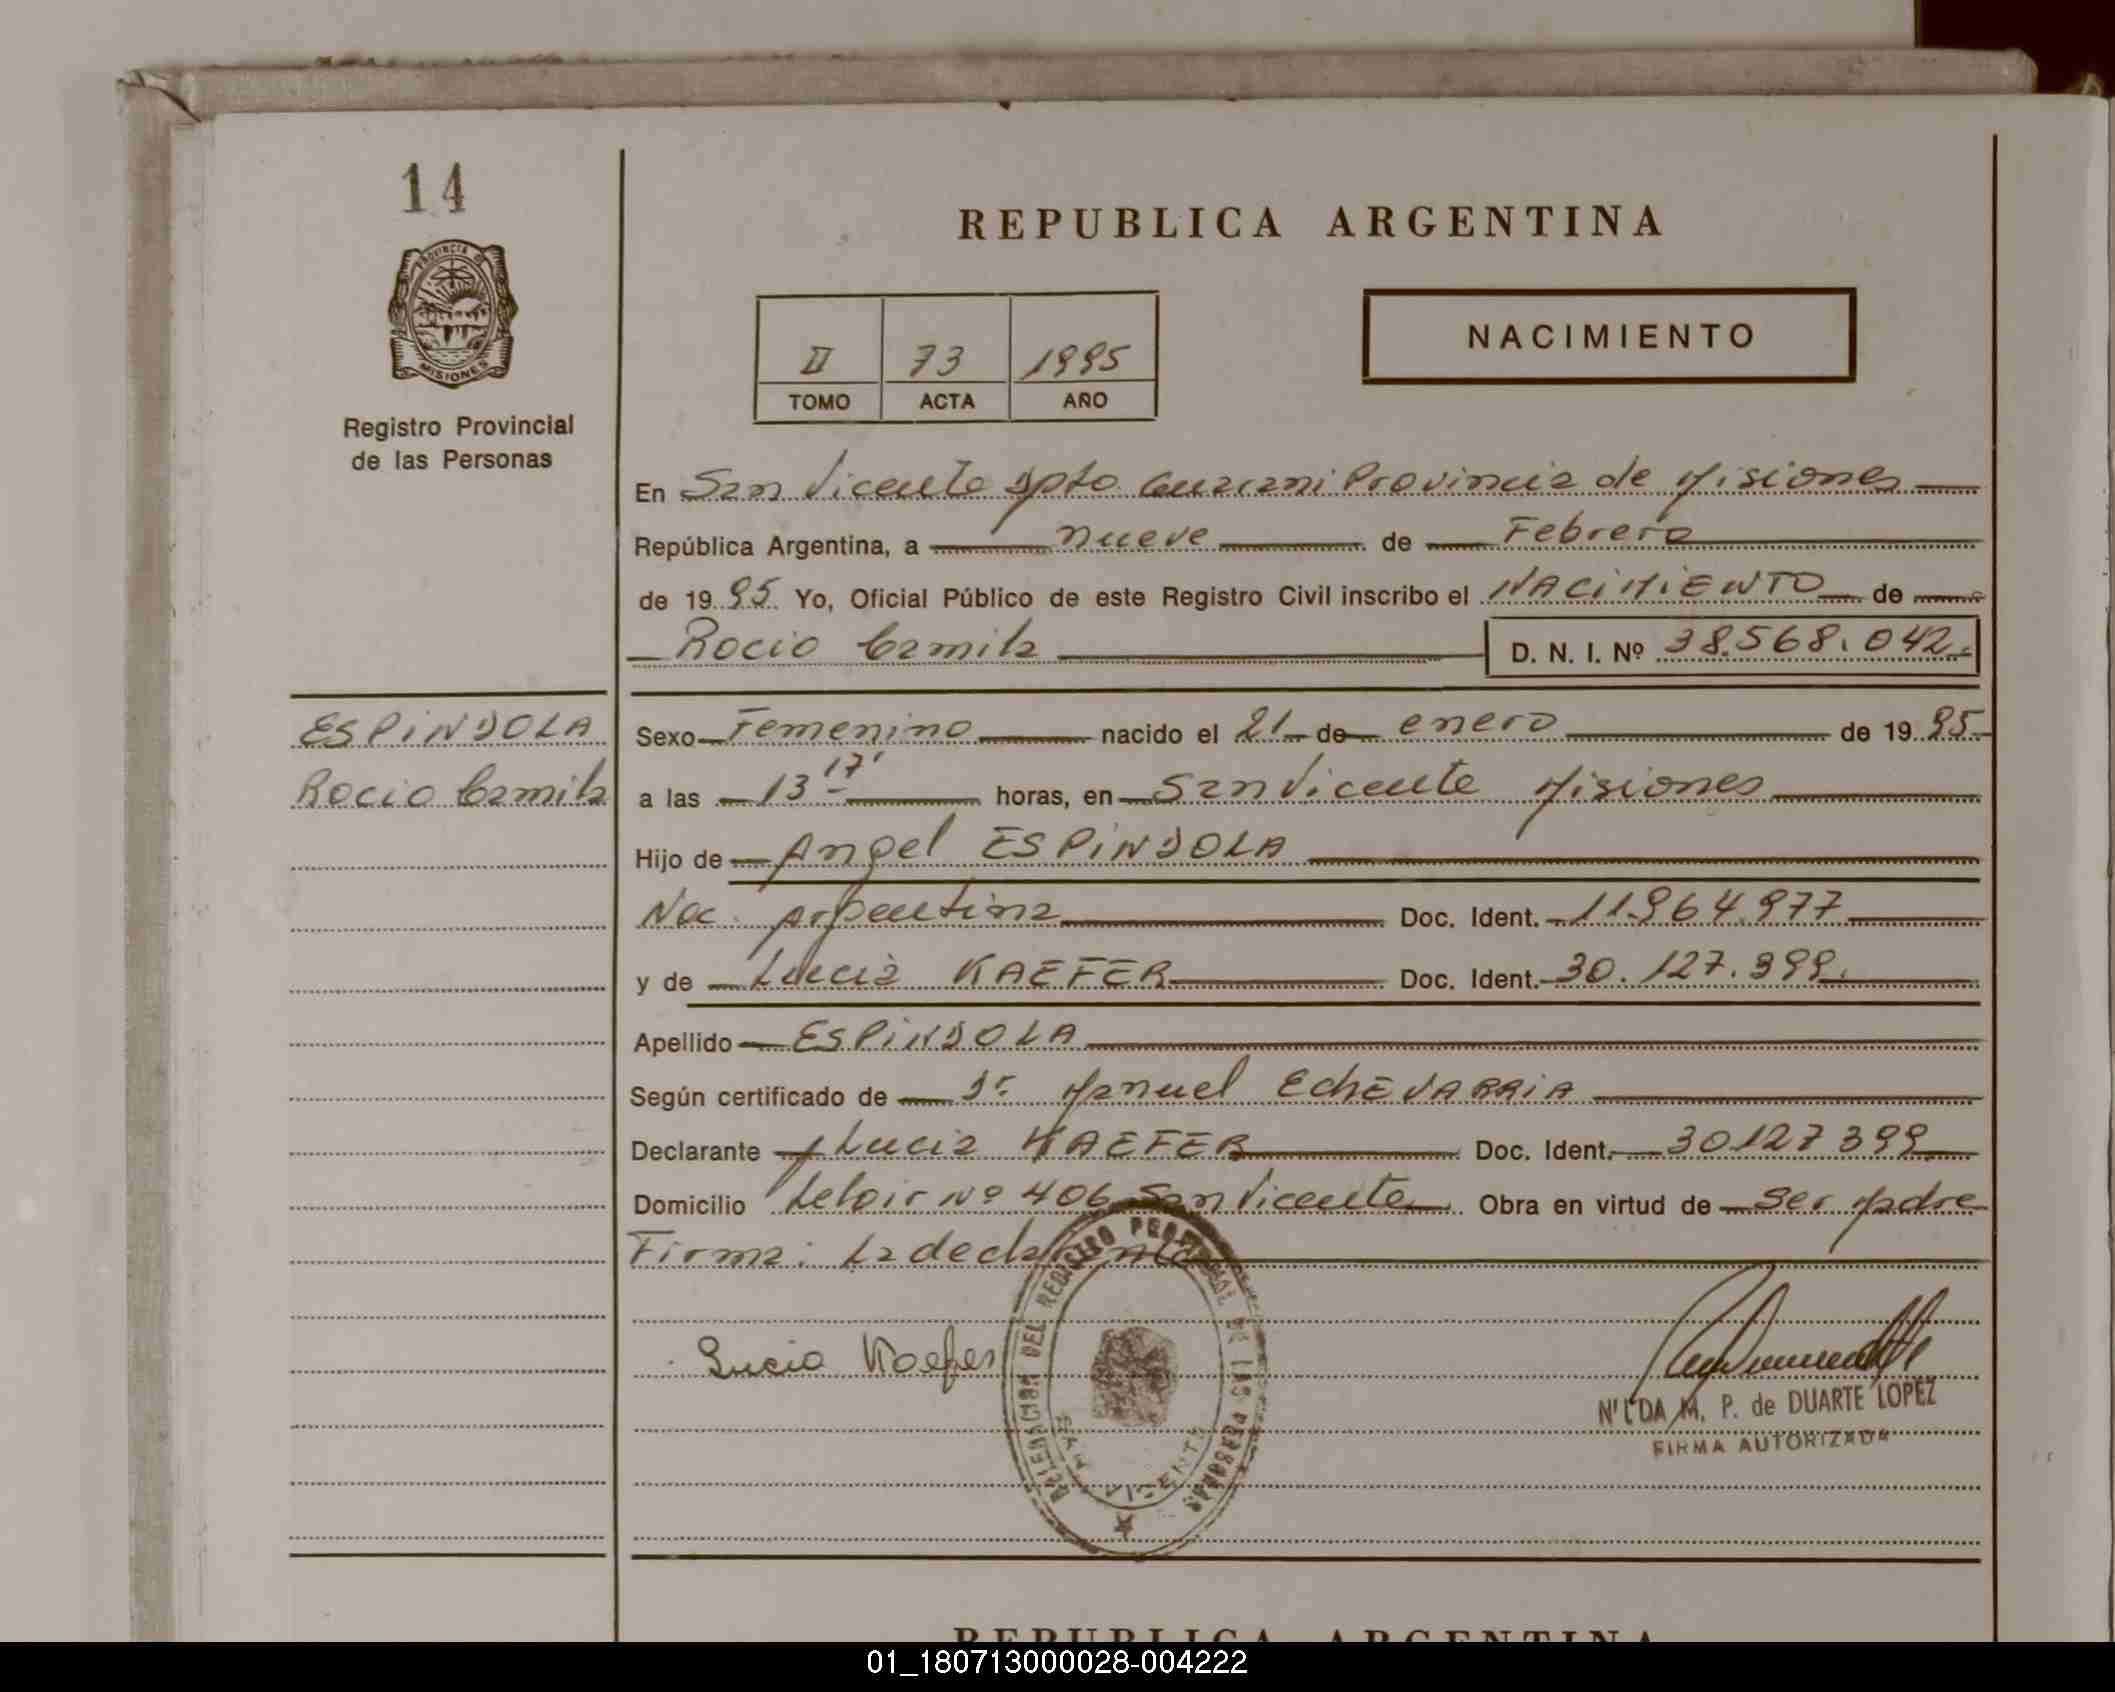 14
PROVINCIA DE
MISIONES
Registro Provincial
de las Personas
REPUBLICA ARGENTINA
NACIMIENTO
II 73 1995
TOMO ACTA AÑO
En San Vicente Dpto Guaraní Provincia de Misiones
República Argentina, a nueve de Febrero
de 1995 Yo, Oficial Público de este Registro Civil inscribo el NACIMIENTO de
Rocio Camila D. N. I. Nº 38.568.042
ESPINDOLA
Rocio Camila
Sexo Femenino nacido el 21 de enero de 1995
a las 13 17' horas, en San Vicente Misiones
Hijo de Angel ESPINDOLA
Nac. Argentina Doc. Ident. 11.964.977
y de Lucia KAEFER Doc. Ident. 30.127.399.
Apellido ESPINDOLA
Según certificado de Dr Manuel EchEVARRIA
Declarante Lucia KAEFER Doc. Ident. 30127399
Domicilio Leloir Nº 406 San Vicente Obra en virtud de ser Madre
Firma: La declarante
Lucia Kaefer
DELEGACION DEL REGISTRO PROVINCIAL DE LAS PERSONAS
SAN VICENTE
NILDA M. P. de DUARTE LOPEZ
FIRMA AUTORIZADA
REPUBLICA ARGENTINA
01_180713000028-004222